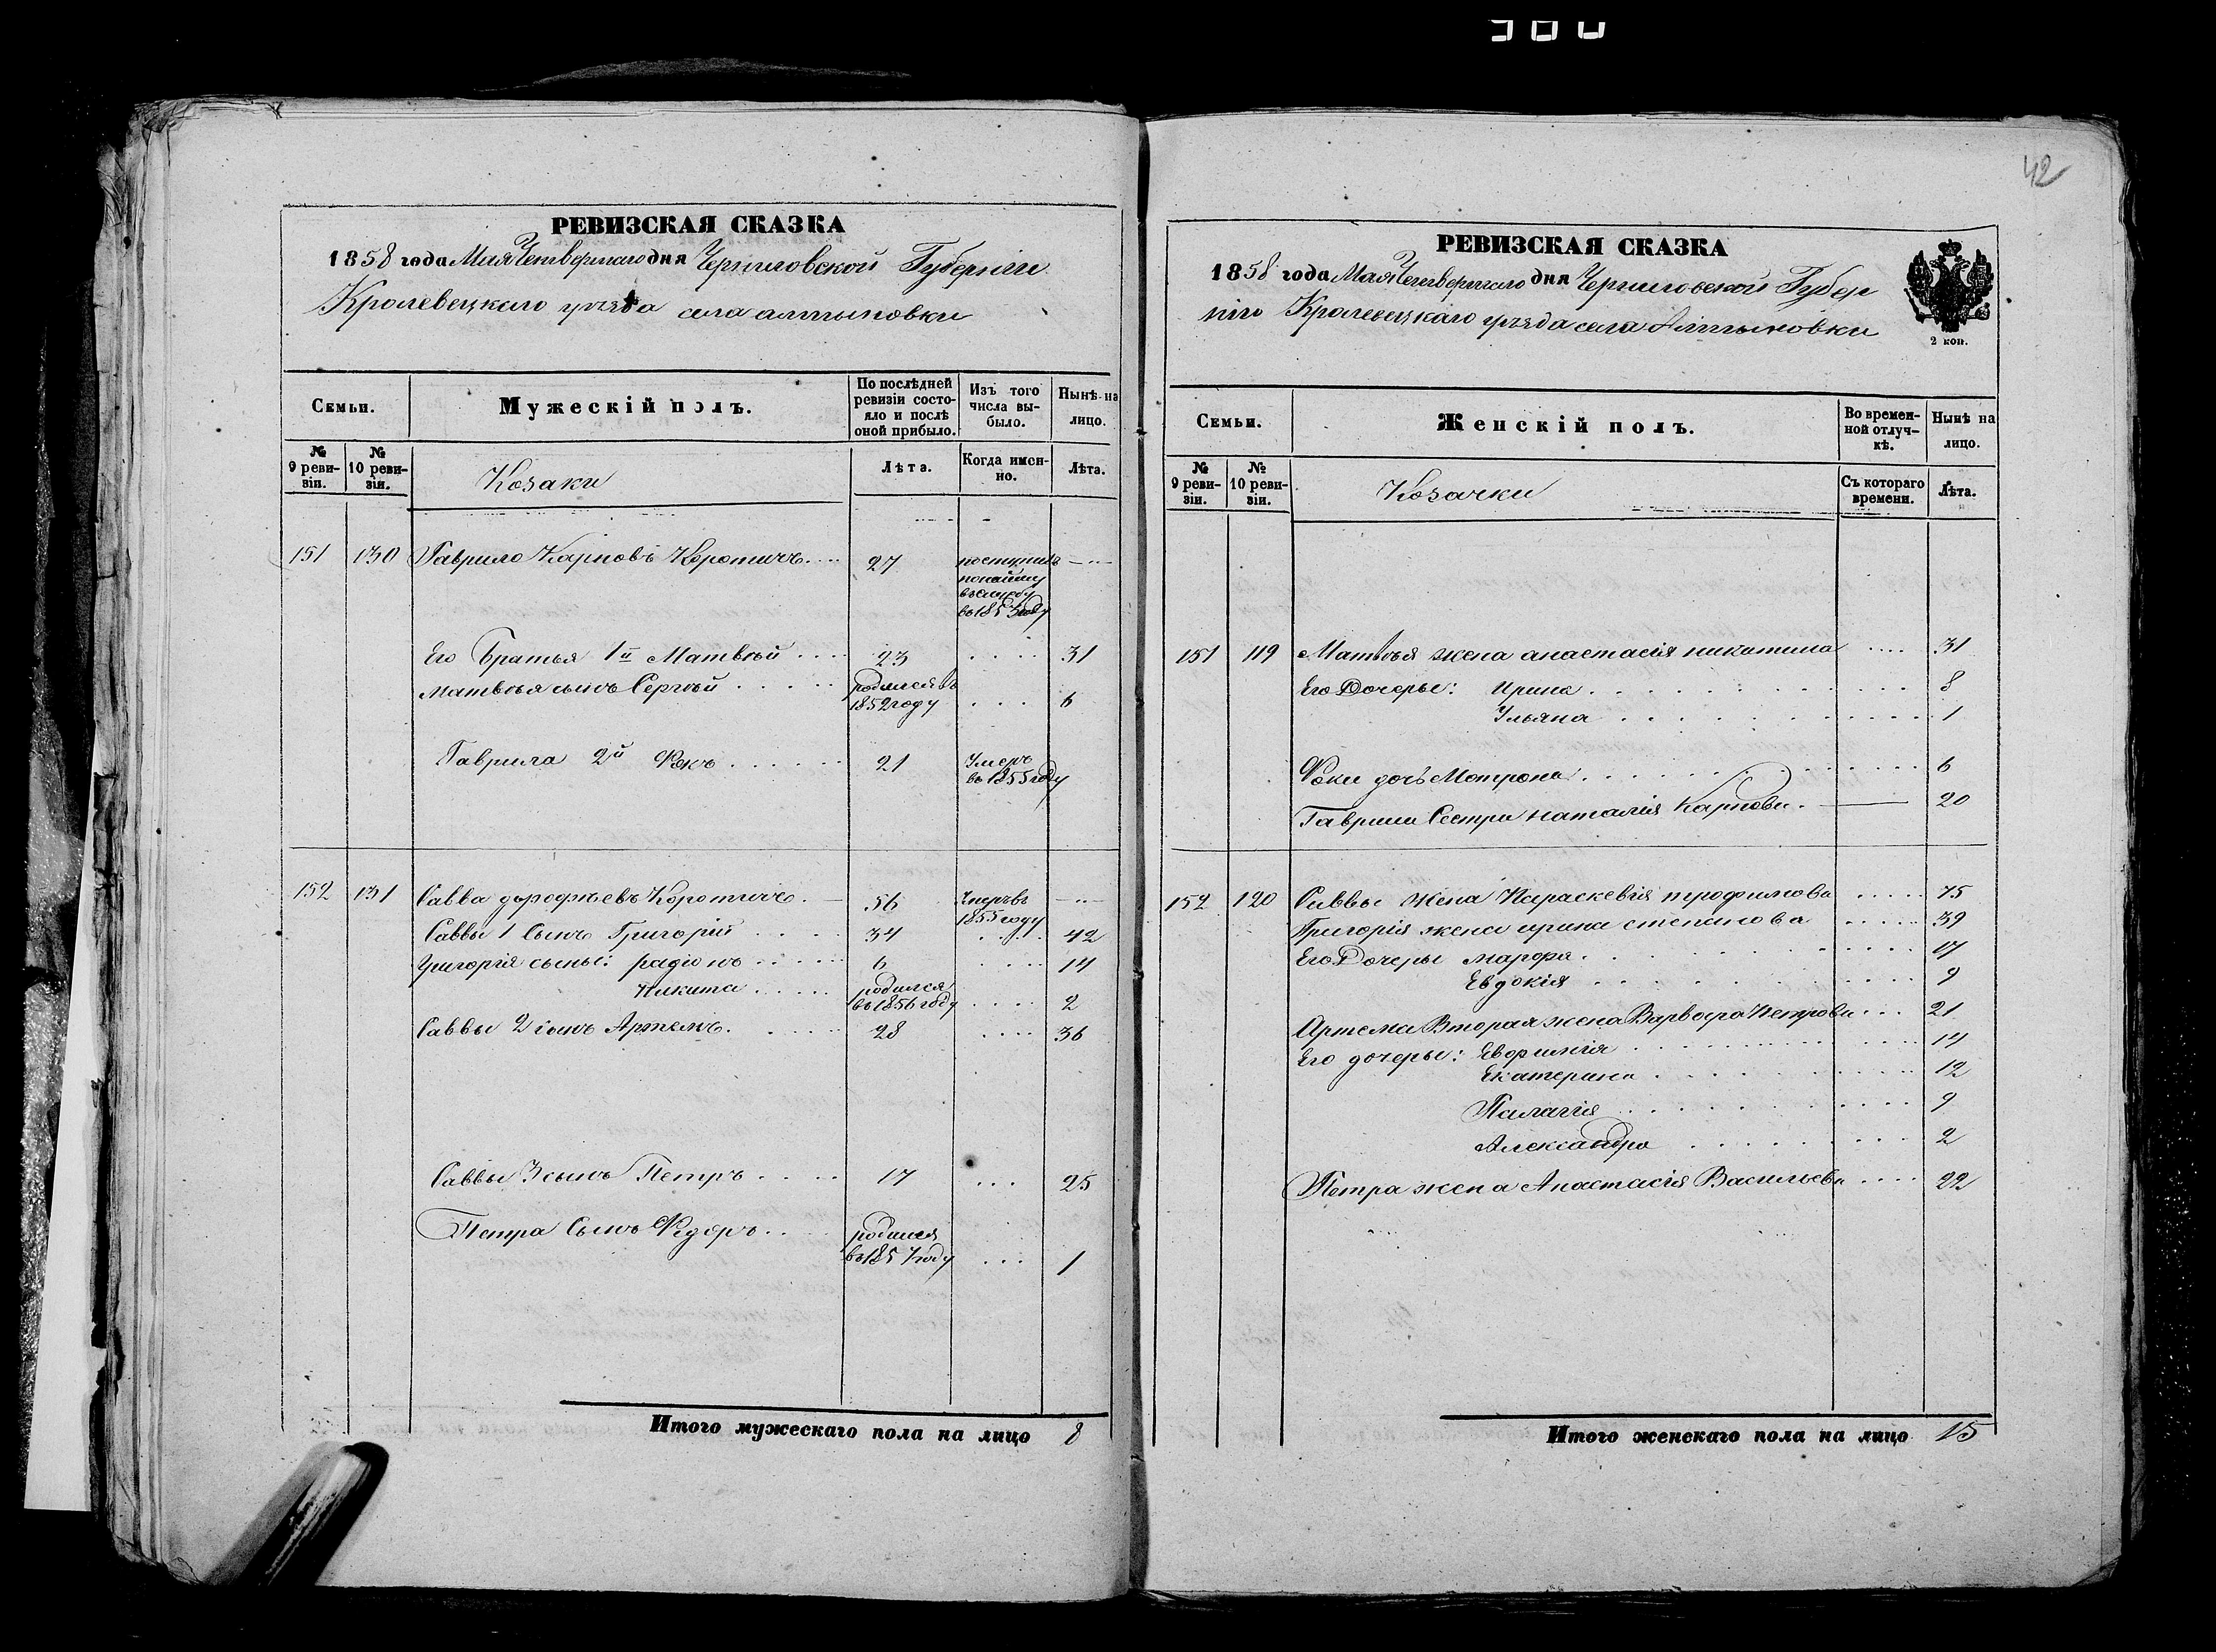 42
РЕВИЗСКАЯ СКАЗКА
1858 года Мая Четвертаго дня Черниговской Губерніи
Кролевецкаго уезда села алтыновки
Семьи.
Мужескій полъ.
По послѣдней ревизіи состояло и послѣ оной прибыло.
Изъ того числа выбыло.
Нынѣ на лицо.
№ 9 ревизіи.
№ 10 ревизіи.
Козаки
Лѣта.
Когда именно.
Лѣта.
151 130 Гаврило Карповъ Коротичъ.... 27 поступилъ
по найму
въ службу
въ 1853 году
Его Братья 1й Матвѣй .... 23 .... 31
Матвѣя сынъ Сергѣй ..... родился въ
1852 году ... 6
Гаврила 2й Фокъ ...... 21 Умеръ
въ 1855 году
152 131 Савва дорофѣевъ Коротичъ. 56 Умеръ въ
1855 году
Саввы 1 Сынъ Григорій .... 34 .... 42
Григорія сыны: радіонъ ..... 6 .... 14
Никита ..... родился
въ 1856 году .... 2
Саввы 2 сынъ Артемъ. ..... 28 .... 36
Саввы 3 сынъ Петръ .... 17 ... 25
Петра Сынъ Федоръ .. родился
въ 1857 году ... 1
Итого мужескаго пола на лицо 8
РЕВИЗСКАЯ СКАЗКА
1858 года Мая Четвертаго дня Черниговской Губер
ніи Кролевецкаго уезда села Алтыновки
2 коп.
Семьи.
Женскій полъ.
Во временной отлучкѣ.
Нынѣ на лицо.
№ 9 ревизіи.
№ 10 ревизіи.
Козачки
Съ котораго времени.
Лѣта.
151 119 Матвѣя жена анастасія никитина .... 31
Его Дочеры: Ирина ........ 8
Ульяна ........ 1
Фоки дочь Мотрона ........ 6
Гаврила Сестра наталія Карпова. 20
152 120 Саввы Жена Параскевія трофимова ..... 75
Григорія жена ирина степанова ..... 39
Его Дочеры марфа ........ 17
Евдокія ........ 9
Артема Вторая жена Варвара Петрова ... 21
Его дочеры: Евфимія ........ 14
Екатерина ........ 12
Палагія ........ 9
Александра ........ 2
Петра жена Анастасія Васильева .... 22
Итого женскаго пола на лицо 15